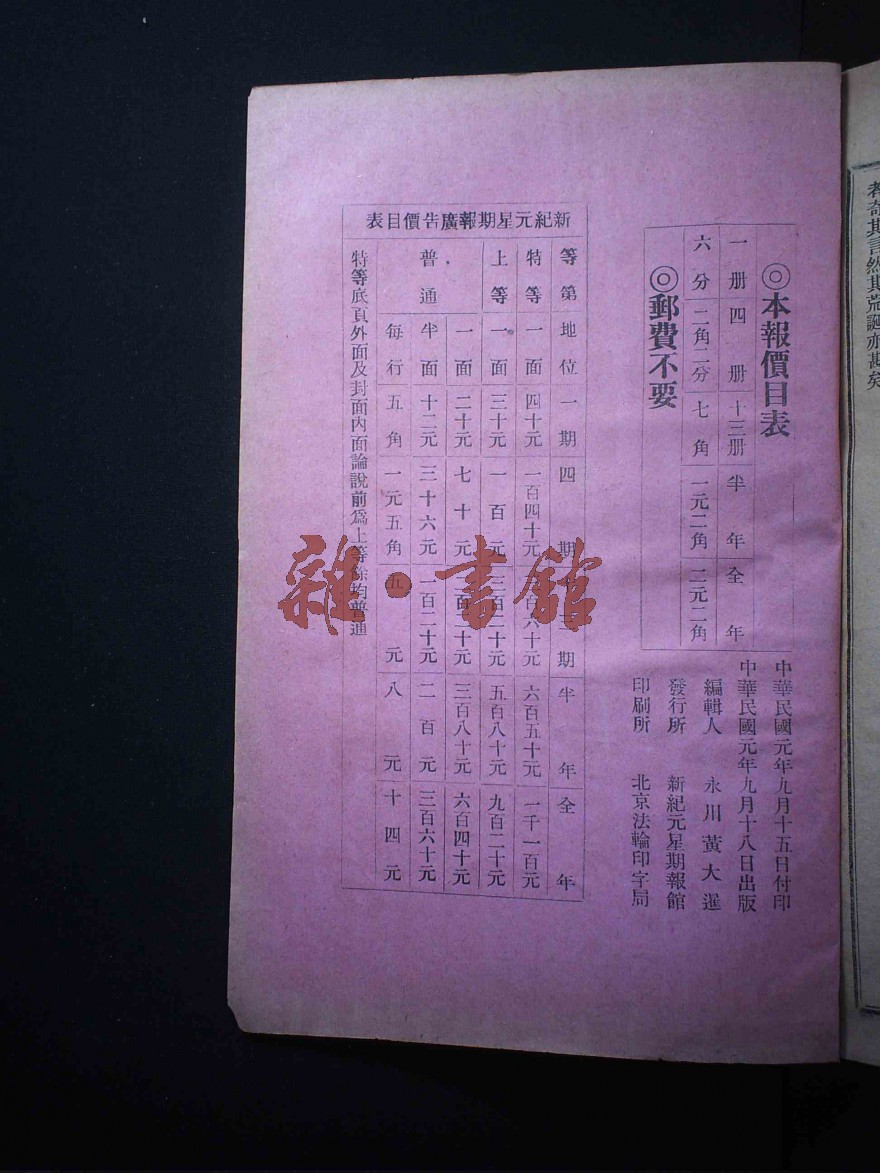 ◎本報價目表
一册 四册 十三册 半年 全年
六分 二角二分 七角 一元二角 二元二角
◎郵費不要
中華民國元年九月十五日付印
中華民國元年九月十八日出版
編輯人 永川黃大暹
發行所 新紀元星期報館
印刷所 北京法輪印字局
新紀元星期報廣告價目表
等第 地位 一期 四期 十三期 半年 全年
特等 一面 四十元 一百四十元 百六十元 六百五十元 一千一百元
上等 一面 三十元 一百元 三百二十元 五百八十元 九百二十元
普通 一面 二十元 七十元 二百二十元 三百八十元 六百四十元
半面 十二元 三十六元 一百二十元 二百元 三百六十元
每行 五角 一元五角 五元 八元 十四元
特等底頁外面及封面內面論說前爲上等餘均普通
雜·書館
者奇其言然其荒誕亦甚矣